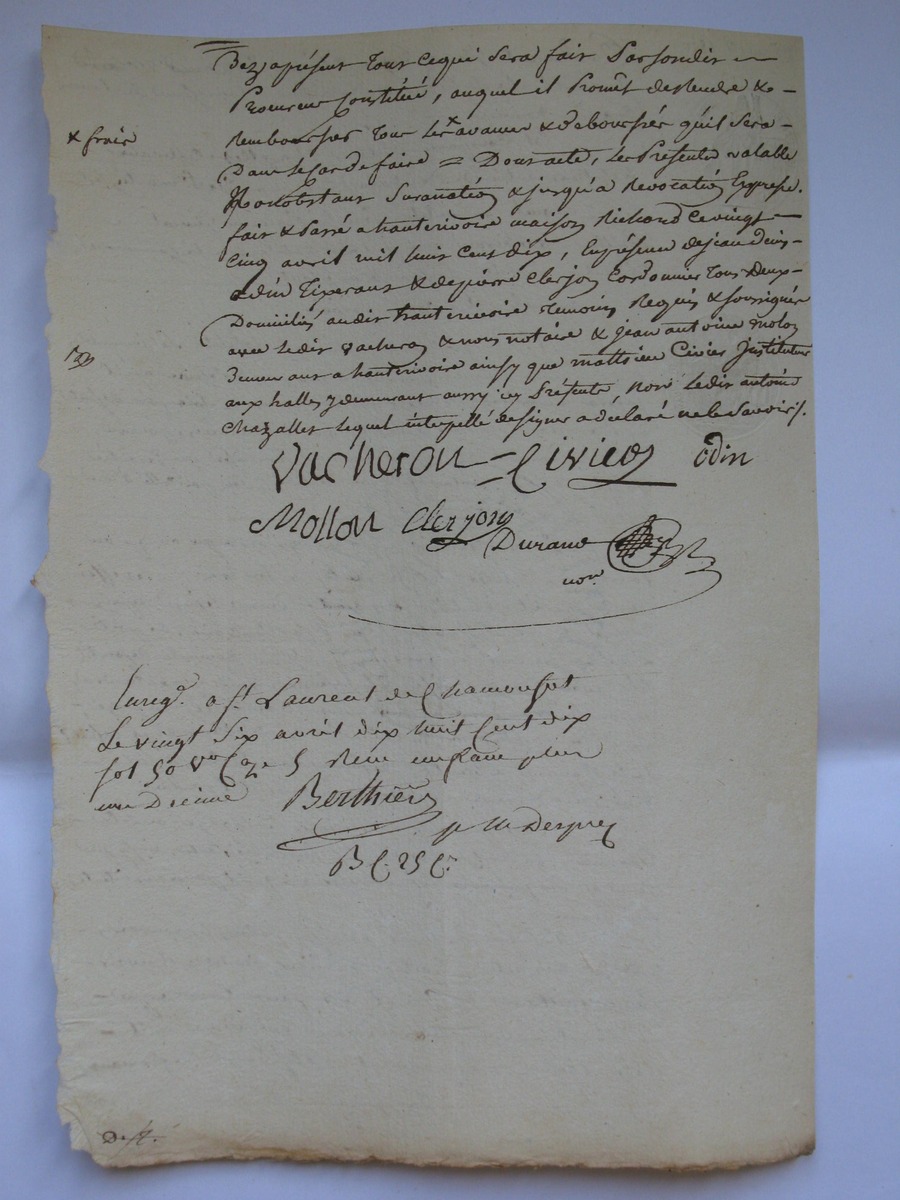 Dez apésent tout ce qui sera fait par son dit
Procureur Constitué, auquel il Promêt de Rendre &
Rembourser tous les x avances & deboursés qu'il sera
x frais
Dans le Cas de faire = Dont acte, les Présentes valable
Nonobstant Surannation & jusqu'a Revocation Expresse.
fait & Passé a hauterivoire maison Richard Ce vingt
Cinq avril mil huit Cent dix, En présence de jean
odin Tixerant & de pierre Clerjon Cordonnier Tous Deux
Domiciliés audit hauterivoire Temoins Requis & soussignés
avec ledit vacheron & nous notaire & jean antoine molon
Demeurant a hauterivoire ainsy que mathieu Civier Instituteur
aux halles y demeurant aussy icy Présents, Non ledit antoine
Chazallet lequel interpellé de signer a déclaré ne le Savoir /.
Vacheron = Civier odin
Mollon Clerjon
Durand
nore
Enregé. a St Laurent de Chamousset
Le vingt Six avril dix huit Cent dix
fol 50 vo Ce 5 Reçu un franc plus
un Decime Berthier
Desprez
B C. 25 C.